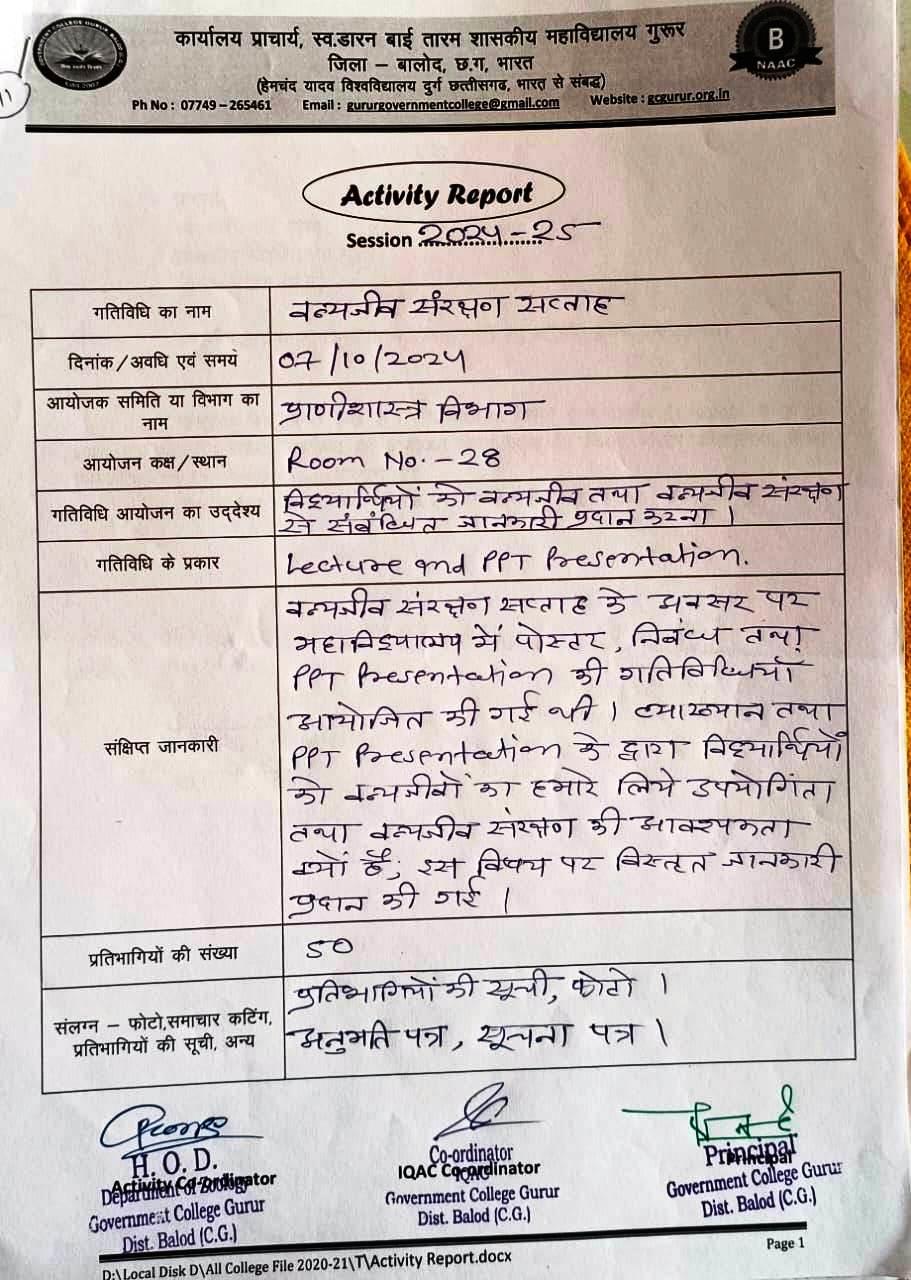 कार्यालय प्राचार्य, स्व.डारन बाई तारम शासकीय महाविद्यालय गुरूर
जिला – बालोद, छ.ग, भारत
(हेमचंद यादव विश्वविद्यालय दुर्ग छत्तीसगढ, भारत से संबद्ध)
Ph No : 07749 – 265461 Email : gururgovernmentcollege@gmail.com Website : gcgurur.org.in
B
NAAC
11
Activity Report
Session 2024-25
गतिविधि का नाम वन्यजीव संरक्षण सप्ताह
दिनांक/अवधि एवं समय 07/10/2024
आयोजक समिति या विभाग का
नाम
प्राणीशास्त्र विभाग
आयोजन कक्ष/स्थान Room No.-28
गतिविधि आयोजन का उद्देश्य
विद्यार्थियों को वन्यजीव तथा वन्यजीव संरक्षण
से संबंधित जानकारी प्रदान करना।
गतिविधि के प्रकार Lecture and PPT Presentation.
संक्षिप्त जानकारी
वन्यजीव संरक्षण सप्ताह के अवसर पर
महाविद्यालय में पोस्टर, निबंध तथा
PPT Presentation की गतिविधियाँ
आयोजित की गई थी। व्याख्यान तथा
PPT Presentation के द्वारा विद्यार्थियों
को वन्यजीवों का हमारे लिये उपयोगिता
तथा वन्यजीव संरक्षण की आवश्यकता
क्यों है; इस विषय पर विस्तृत जानकारी
प्रदान की गई।
प्रतिभागियों की संख्या 50
संलग्न – फोटो,समाचार कटिंग,
प्रतिभागियों की सूची, अन्य
प्रतिभागियों की सूची, फोटो।
अनुमति पत्र, सूचना पत्र।
H. O. D.
Activity Co-ordinator
Department of Zoology
Government College Gurur
Dist. Balod (C.G.)
Co-ordinator
IQAC Co-ordinator
IQAC
Government College Gurur
Dist. Balod (C.G.)
Principal
Principal
Government College Gurur
Dist. Balod (C.G.)
Page 1
D:\Local Disk D\All College File 2020-21\T\Activity Report.docx